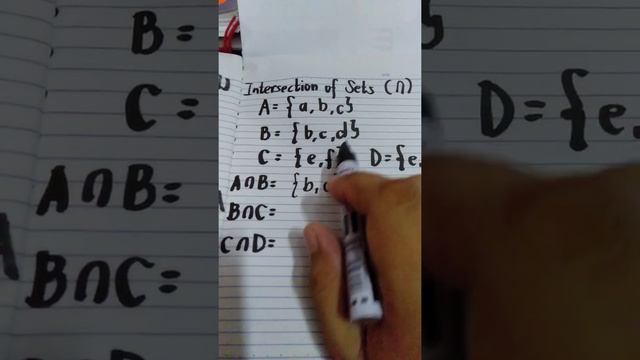 Intersection of Sets (∩)
A = {a, b, c}
B = {b, c, d}
C = {e, f} D = {e,
A∩B = {b, c
B∩C =
C∩D =